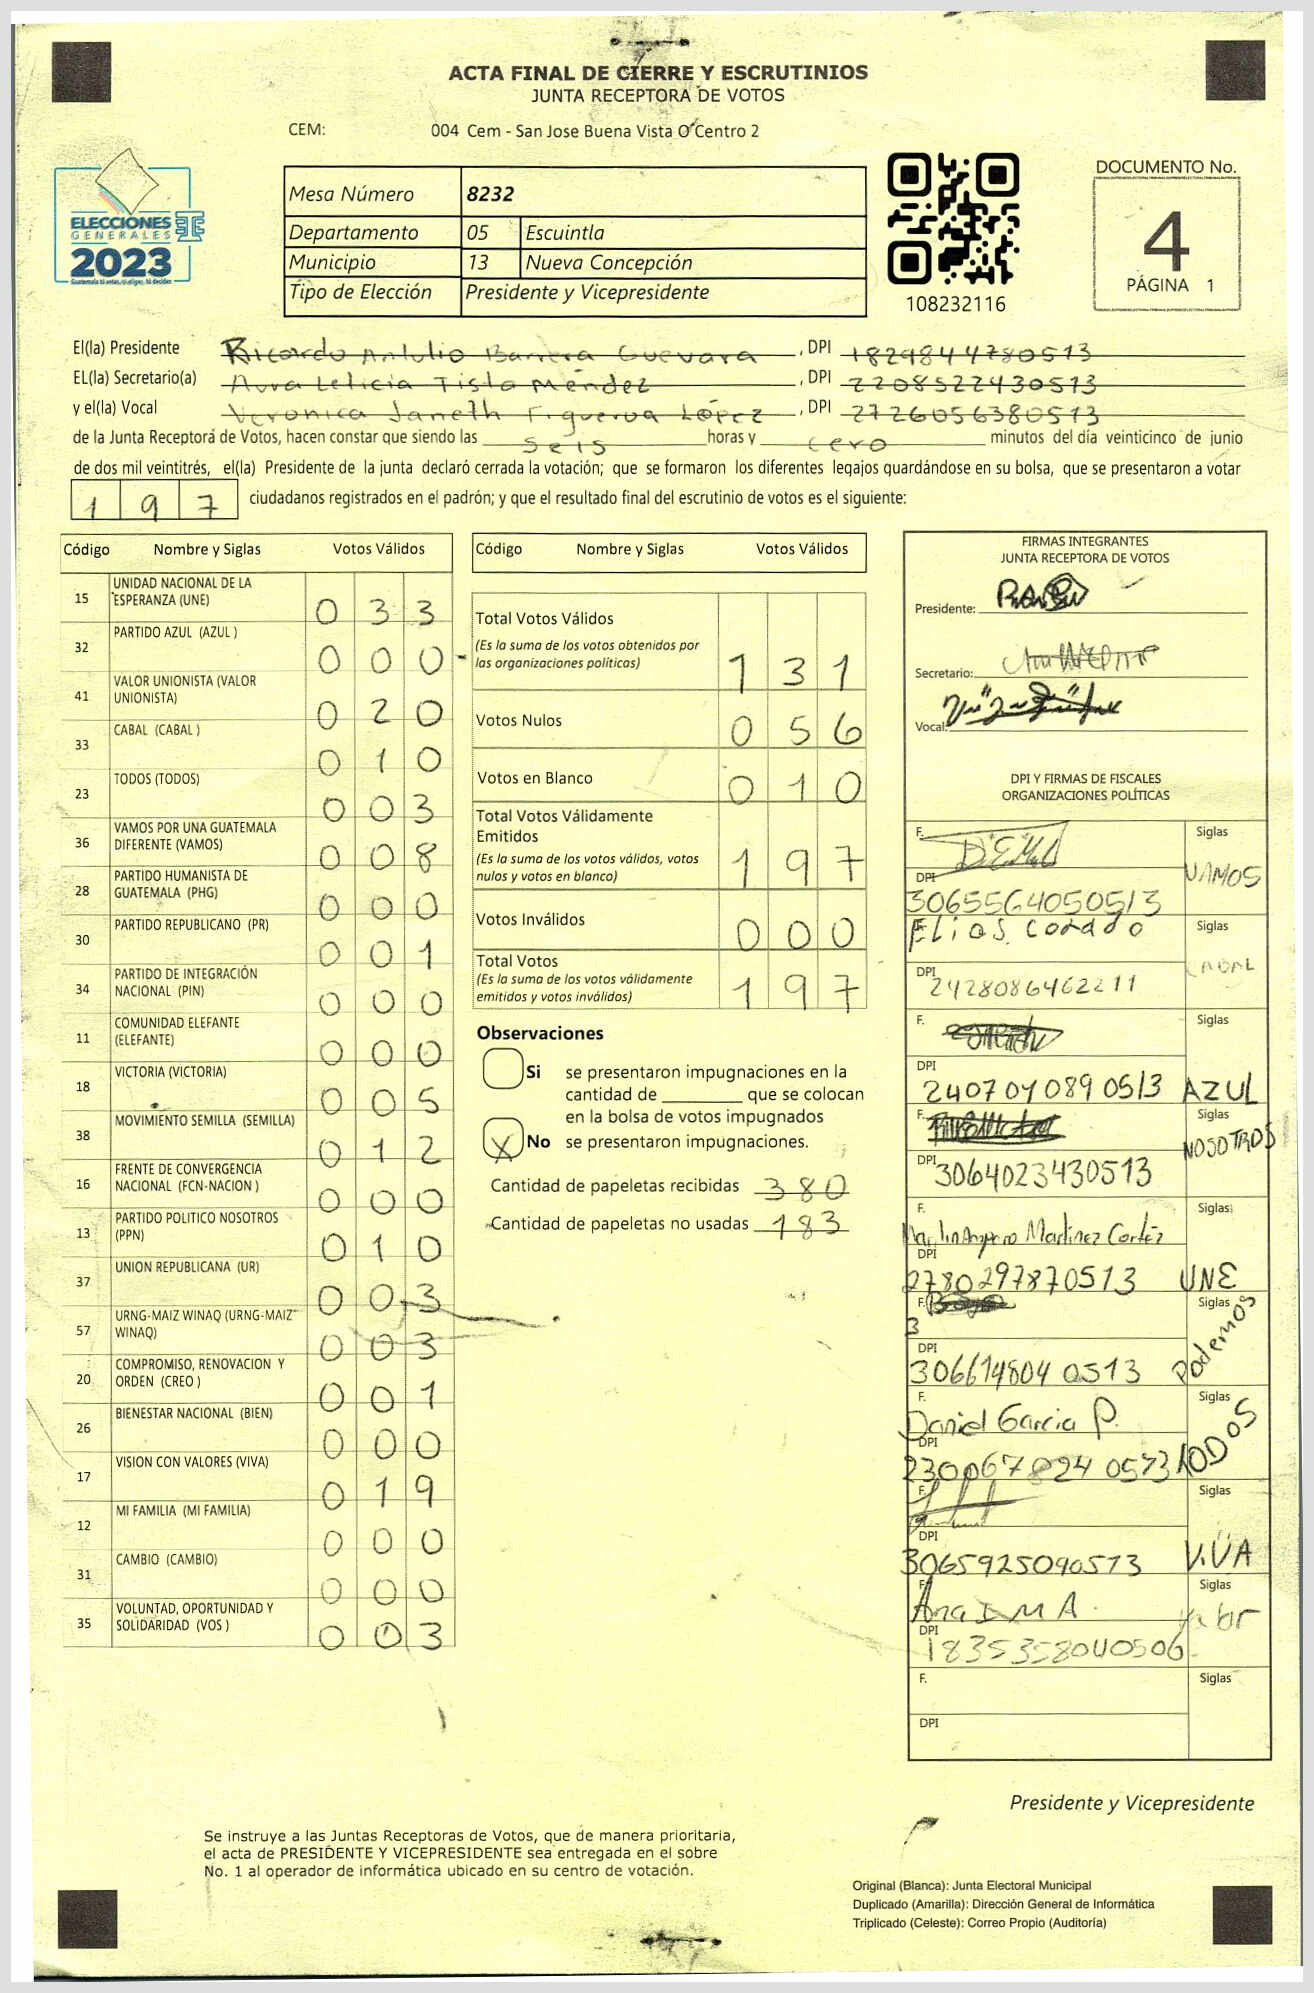 ACTA FINAL DE CIERRE Y ESCRUTINIOS
JUNTA RECEPTORA DE VOTOS
CEM: 004 Cem - San Jose Buena Vista O Centro 2
ELECCIONES
GENERALES
2023
Mesa Número 8232
Departamento 05 Escuintla
Municipio 13 Nueva Concepción
Tipo de Elección Presidente y Vicepresidente
108232116
DOCUMENTO No.
4
PÁGINA 1
El(la) Presidente Ricardo Antulio Barrera Guevara, DPI 1829844780513
EL(la) Secretario(a) Aura Leticia Tista Méndez, DPI 2208522430513
y el(la) Vocal Veronica Janeth Figueroa López, DPI 2726056380513
de la Junta Receptora de Votos, hacen constar que siendo las seis horas y cero minutos del día veinticinco de junio
de dos mil veintitrés, el(la) Presidente de la junta declaró cerrada la votación; que se formaron los diferentes legajos guardándose en su bolsa, que se presentaron a votar
197 ciudadanos registrados en el padrón; y que el resultado final del escrutinio de votos es el siguiente:
Código Nombre y Siglas Votos Válidos
15 UNIDAD NACIONAL DE LA ESPERANZA (UNE) 033
32 PARTIDO AZUL (AZUL ) 000
41 VALOR UNIONISTA (VALOR UNIONISTA) 020
33 CABAL (CABAL ) 010
23 TODOS (TODOS) 003
36 VAMOS POR UNA GUATEMALA DIFERENTE (VAMOS) 008
28 PARTIDO HUMANISTA DE GUATEMALA (PHG) 000
30 PARTIDO REPUBLICANO (PR) 001
34 PARTIDO DE INTEGRACIÓN NACIONAL (PIN) 000
11 COMUNIDAD ELEFANTE (ELEFANTE) 000
18 VICTORIA (VICTORIA) 005
38 MOVIMIENTO SEMILLA (SEMILLA) 012
16 FRENTE DE CONVERGENCIA NACIONAL (FCN-NACION ) 000
13 PARTIDO POLITICO NOSOTROS (PPN) 010
37 UNION REPUBLICANA (UR) 003
57 URNG-MAIZ WINAQ (URNG-MAIZ WINAQ) 003
20 COMPROMISO, RENOVACION Y ORDEN (CREO ) 001
26 BIENESTAR NACIONAL (BIEN) 000
17 VISION CON VALORES (VIVA) 019
12 MI FAMILIA (MI FAMILIA) 000
31 CAMBIO (CAMBIO) 000
35 VOLUNTAD, OPORTUNIDAD Y SOLIDARIDAD (VOS ) 003
Código Nombre y Siglas Votos Válidos
Total Votos Válidos 131
(Es la suma de los votos obtenidos por
las organizaciones políticas)
Votos Nulos 056
Votos en Blanco 010
Total Votos Válidamente
Emitidos 197
(Es la suma de los votos válidos, votos
nulos y votos en blanco)
Votos Inválidos 000
Total Votos 197
(Es la suma de los votos válidamente
emitidos y votos inválidos)
Observaciones
Si se presentaron impugnaciones en la
cantidad de ________ que se colocan
en la bolsa de votos impugnados
X No se presentaron impugnaciones.
Cantidad de papeletas recibidas 380
Cantidad de papeletas no usadas 183
FIRMAS INTEGRANTES
JUNTA RECEPTORA DE VOTOS
Presidente:
Secretario:
Vocal:
DPI Y FIRMAS DE FISCALES
ORGANIZACIONES POLÍTICAS
F. Siglas VAMOS
DPI 3065564050513
F. Elias Corado Siglas CABAL
DPI 2428086462211
F. Siglas AZUL
DPI 2407040890513
F. Siglas NOSOTROS
DPI 3064023430513
F. Martinez Cortéz Siglas UNE
DPI 2780297870513
F. Siglas Podemos
DPI 3066148040513
F. Daniel Garcia P. Siglas TODOS
DPI 2300678240513
F. Siglas VIVA
DPI 3065925090513
F. Ana I M A. Siglas Valor
DPI 1835358040506
F. Siglas
DPI
Presidente y Vicepresidente
Se instruye a las Juntas Receptoras de Votos, que de manera prioritaria,
el acta de PRESIDENTE Y VICEPRESIDENTE sea entregada en el sobre
No. 1 al operador de informática ubicado en su centro de votación.
Original (Blanca): Junta Electoral Municipal
Duplicado (Amarilla): Dirección General de Informática
Triplicado (Celeste): Correo Propio (Auditoría)